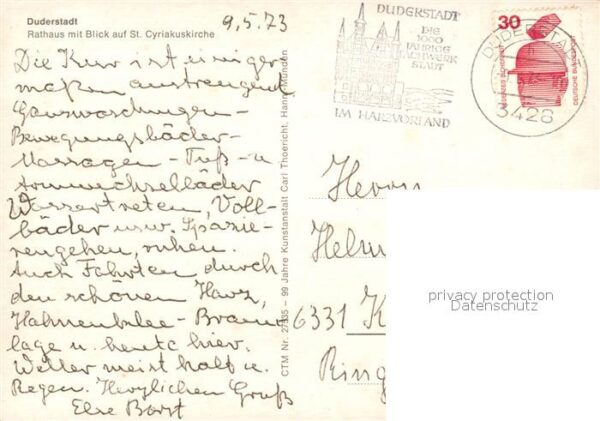 Duderstadt
Rathaus mit Blick auf St. Cyriakuskirche
9.5.73
Die Kur ist einiger
maßen anstrengend
Ganzwaschungen -
Bewegungsbäder -
Massagen - Fuß - u
Armwechselbäder
Wassertreten, Voll-
bäder usw. Spazie-
rengehen, ruhen.
Auch Fahrten durch
den schönen Harz,
Hahnenklee - Braun
lage u. heute hier.
Wetter meist kalt u.
Regen. Herzlichen Gruß
Else Borst
CTM Nr. 27335 – 99 Jahre Kunstanstalt Carl Thoericht, Hann. Münden
DUDERSTADT
DIE
1000
JÄHRIGE
FACHWERK
STADT
IM HARZVORLAND
30
DEUTSCHE BUNDESPOST
DUDERSTA
3428
Herrn
Helm
6331 K
Ring
privacy protection
Datenschutz